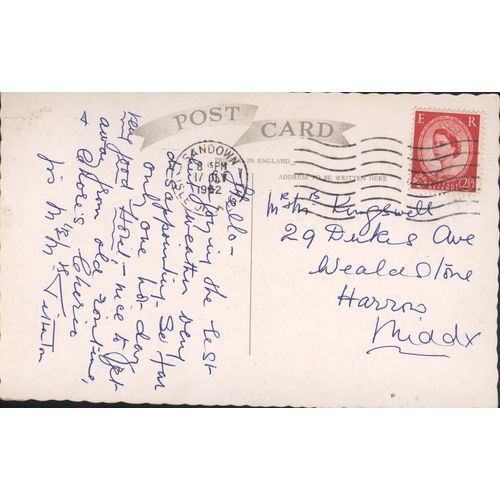 POST CARD
PRINTED IN ENGLAND
ADDRESS TO BE WRITTEN HERE
SANDOWN
6 PM
17
1962
E R
2½
Hello -
the best
weather very
disappointing - So far
only one hot day
very good Hotel - nice to get
away from old routine,
& Chores Cheerio
Mr & Mrs Kingswell
29 Dukes Ave
Wealdstone
Harrow
Middx